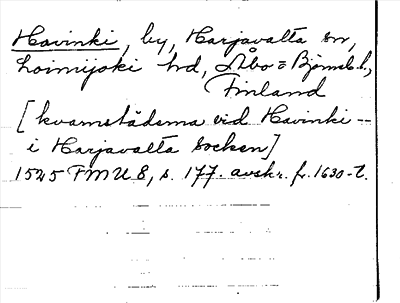 Havinki, by, Harjavalta sn,
Loimijoki hd, Åbo = Björneb. l.,
Finland
[kvarnstäderna vid Havinki --
i Harjavalta socken]
1545 FMU 8, s. 177. avskr. fr. 1630-t.